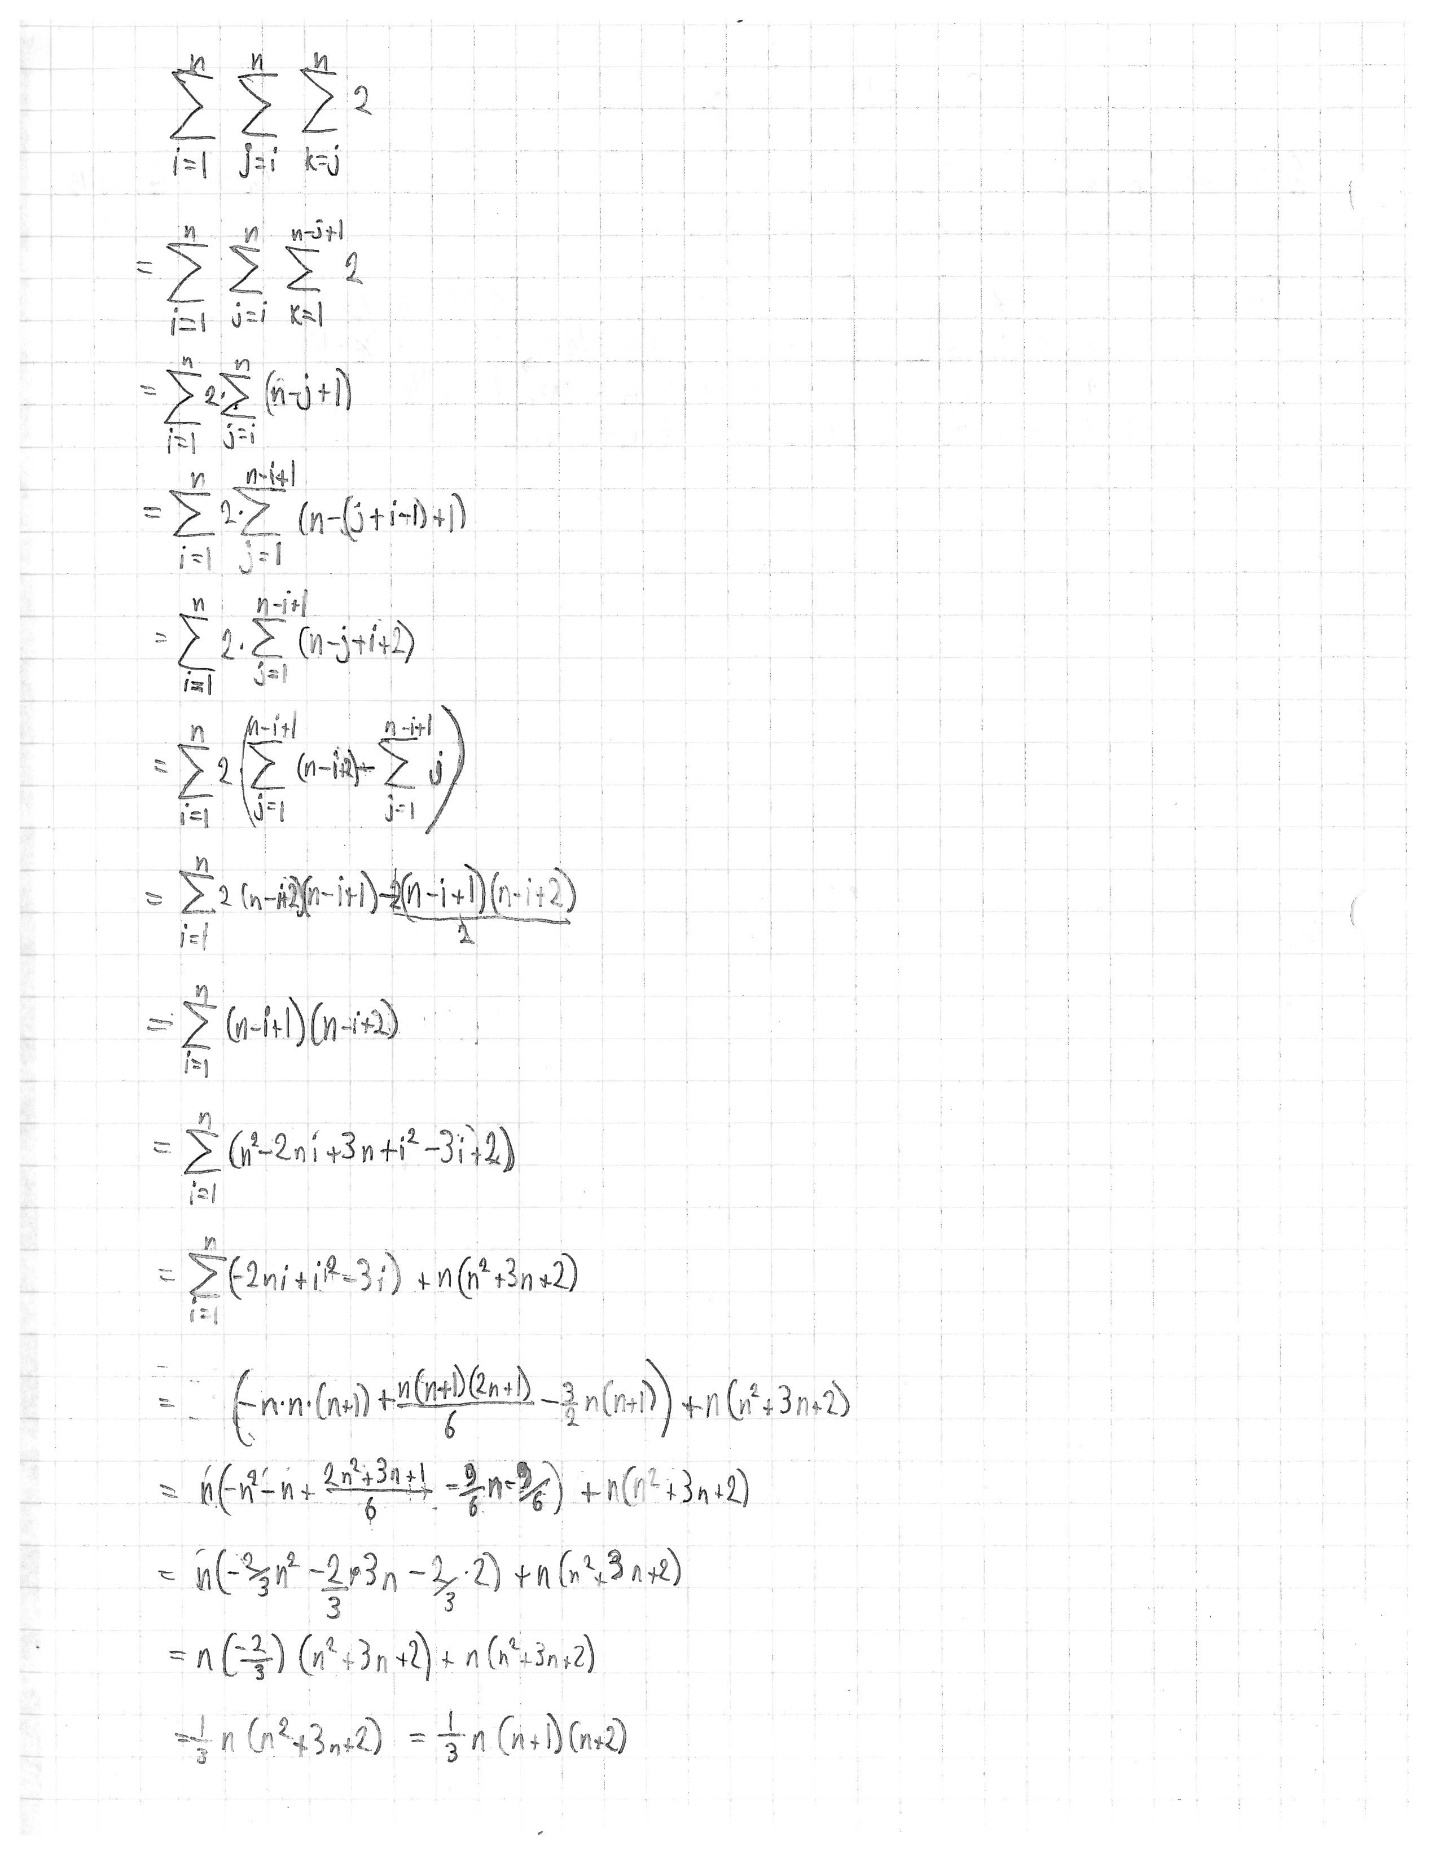 $\sum_{i=1}^{n} \sum_{j=i}^{n} \sum_{k=j}^{n} 2$
$= \sum_{i=1}^{n} \sum_{j=i}^{n} \sum_{k=1}^{n-j+1} 2$
$= \sum_{i=1}^{n} 2 \cdot \sum_{j=i}^{n} (n-j+1)$
$= \sum_{i=1}^{n} 2 \cdot \sum_{j=1}^{n-i+1} (n-(j+i-1)+1)$
$= \sum_{i=1}^{n} 2 \cdot \sum_{j=1}^{n-i+1} (n-j+i+2)$
$= \sum_{i=1}^{n} 2 \left( \sum_{j=1}^{n-i+1} (n-i+2) - \sum_{j=1}^{n-i+1} j \right)$
$= \sum_{i=1}^{n} 2 (n-i+2)(n-i+1) - \frac{2(n-i+1)(n-i+2)}{2}$
$= \sum_{i=1}^{n} (n-i+1)(n-i+2)$
$= \sum_{i=1}^{n} (n^2-2ni+3n+i^2-3i+2)$
$= \sum_{i=1}^{n} (-2ni+i^2-3i) + n(n^2+3n+2)$
$= \left( -n \cdot n \cdot (n+1) + \frac{n(n+1)(2n+1)}{6} - \frac{3}{2} n(n+1) \right) + n(n^2+3n+2)$
$= n \left( -n^2-n+ \frac{2n^2+3n+1}{6} - \frac{9}{6} n - \frac{9}{6} \right) + n(n^2+3n+2)$
$= n \left( -\frac{2}{3} n^2 - \frac{2}{3} \cdot 3n - \frac{2}{3} \cdot 2 \right) + n(n^2+3n+2)$
$= n \left( -\frac{2}{3} \right) (n^2+3n+2) + n(n^2+3n+2)$
$= \frac{1}{3} n (n^2+3n+2) = \frac{1}{3} n (n+1)(n+2)$